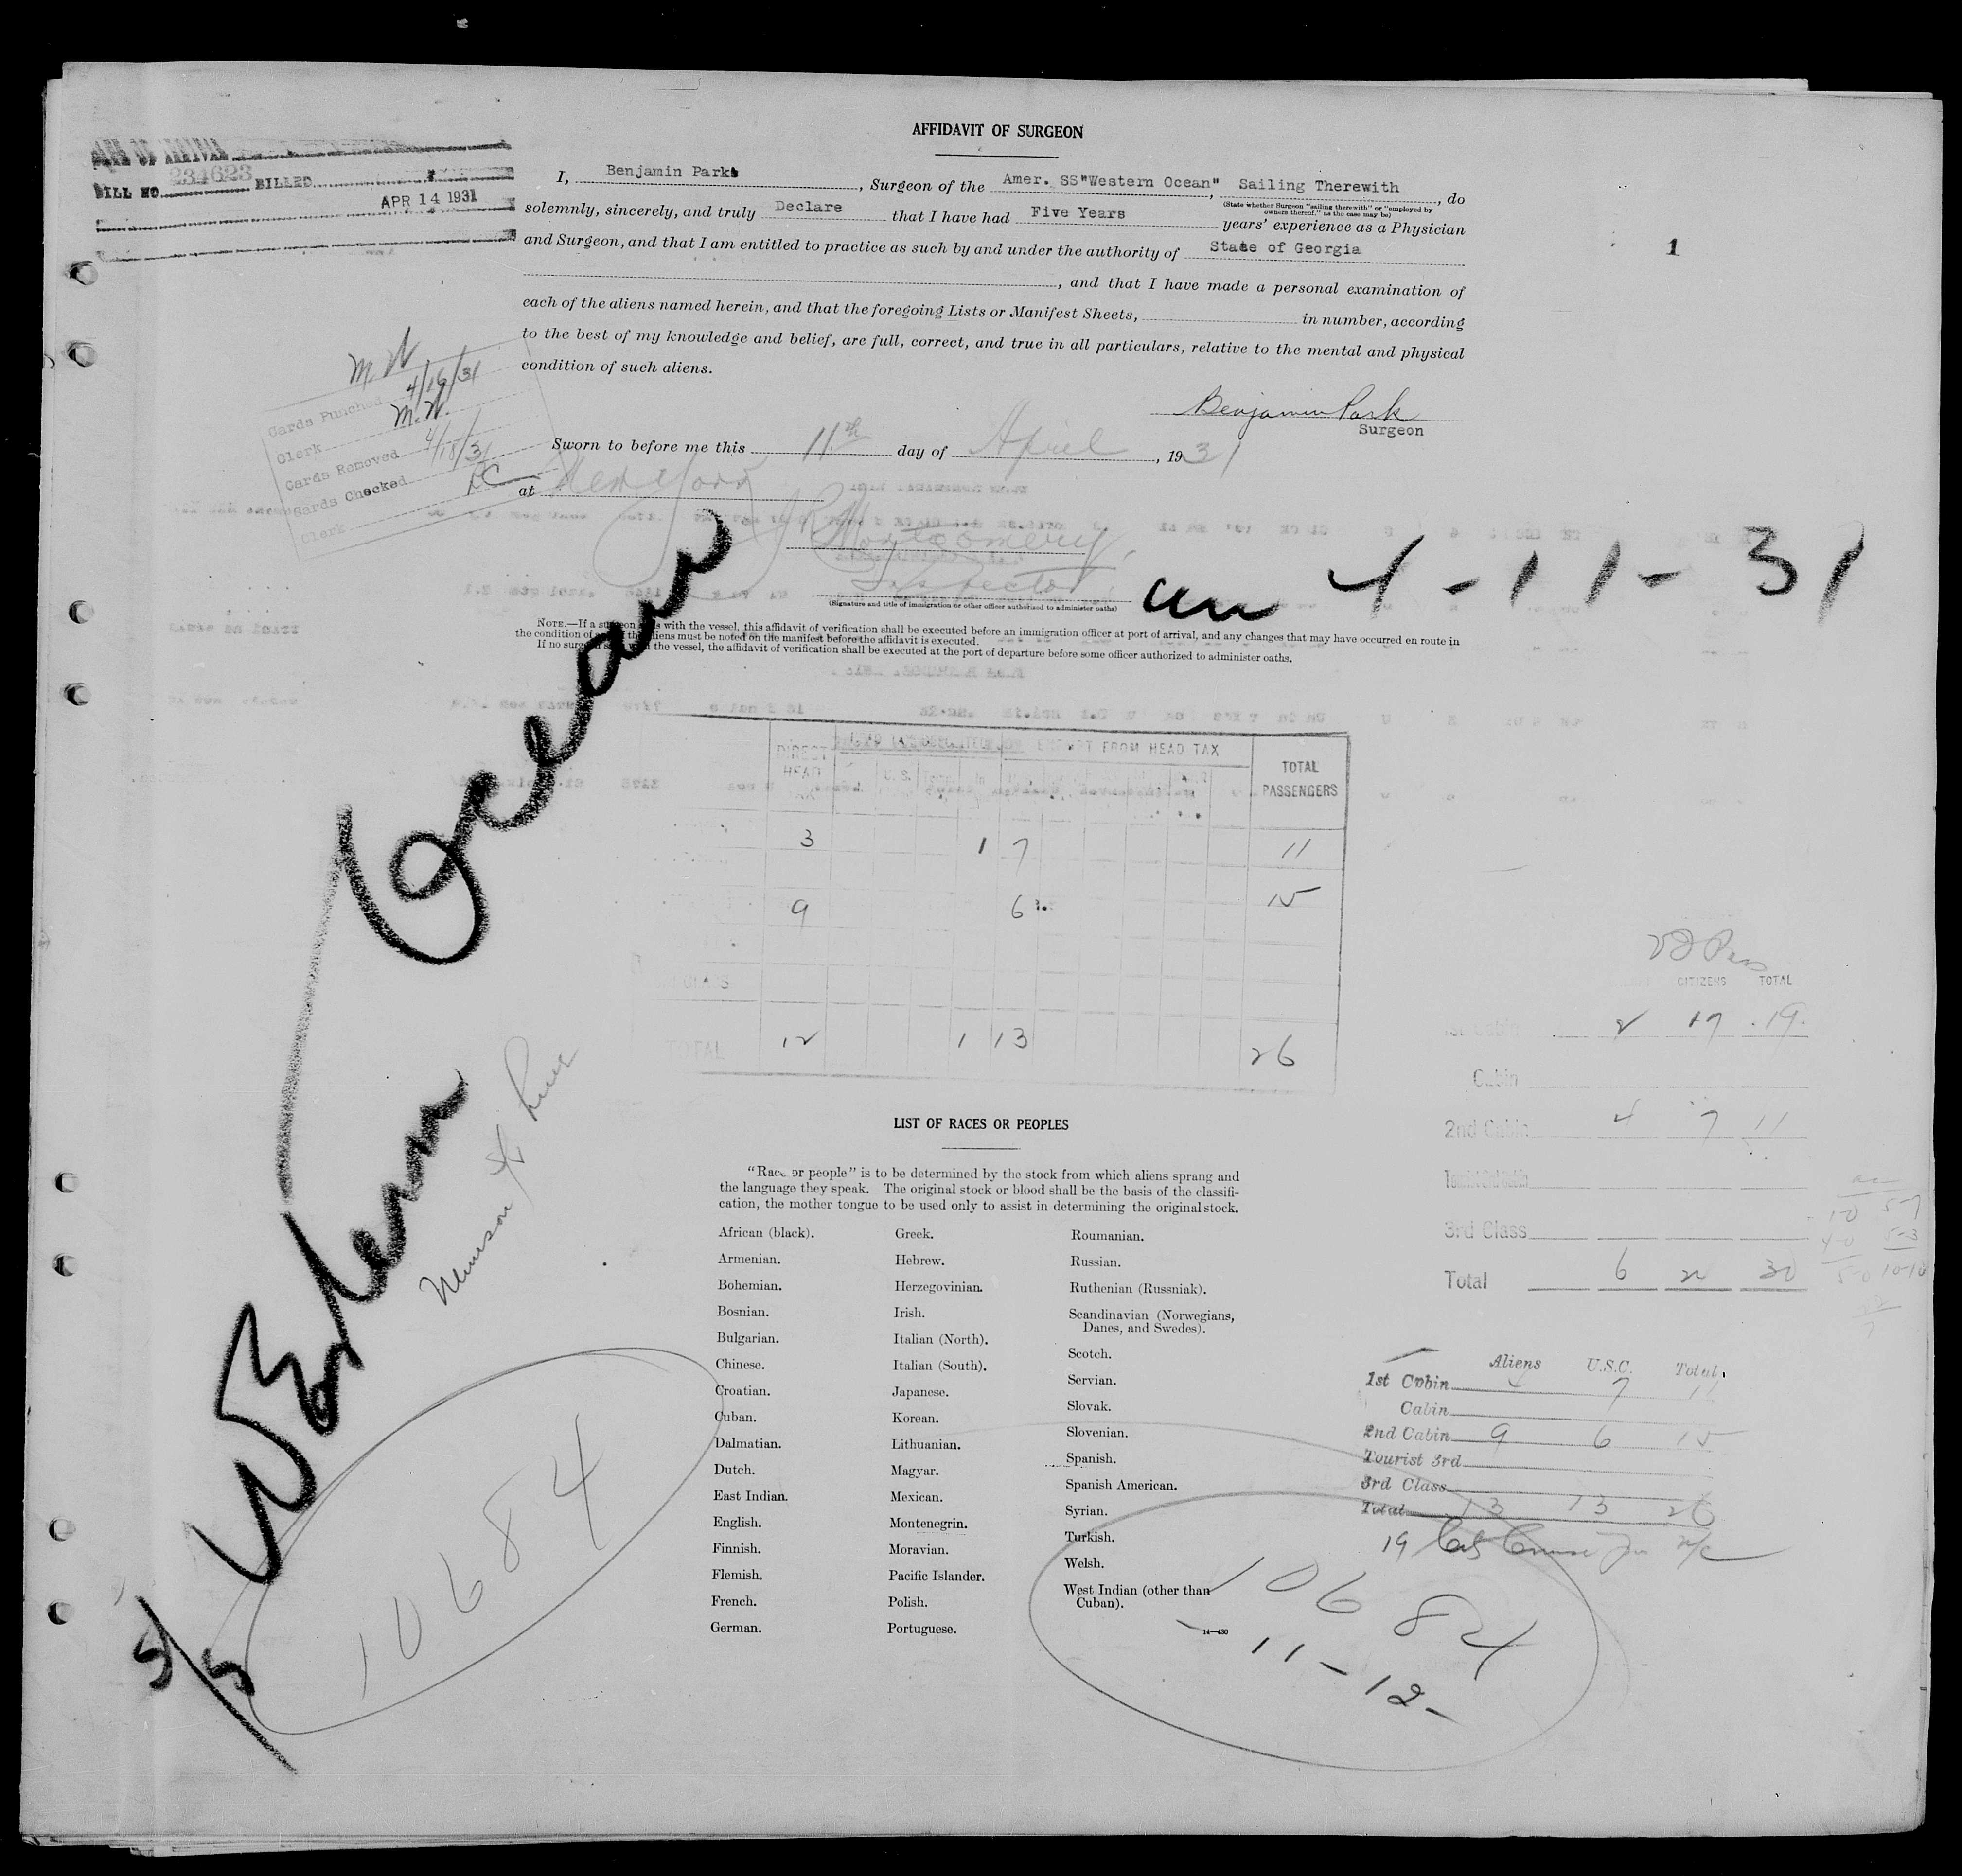 AFFIDAVIT OF SURGEON
DATE OF ARRIVAL
BILL NO. 234623 BILLED
APR 14 1931
I, Benjamin Park, Surgeon of the Amer. SS"Western Ocean", Sailing Therewith, do
(State whether Surgeon "sailing therewith" or "employed by owners thereof," as the case may be)
solemnly, sincerely, and truly Declare that I have had Five Years years' experience as a Physician
and Surgeon, and that I am entitled to practice as such by and under the authority of State of Georgia
, and that I have made a personal examination of
each of the aliens named herein, and that the foregoing Lists or Manifest Sheets, in number, according
to the best of my knowledge and belief, are full, correct, and true in all particulars, relative to the mental and physical
condition of such aliens.
1
Benjamin Park
Surgeon
M.W.
Cards Punched 4/16/31
Clerk M.W.
Cards Removed 4/18/31
Cards Checked
Clerk
Sworn to before me this 11th day of April, 1931
at New York
Montgomery
Inspector
(Signature and title of immigration or other officer authorized to administer oaths)
4-11-31
NOTE.—If a surgeon sails with the vessel, this affidavit of verification shall be executed before an immigration officer at port of arrival, and any changes that may have occurred en route in
the condition of any of the aliens must be noted on the manifest before the affidavit is executed.
If no surgeon sails with the vessel, the affidavit of verification shall be executed at the port of departure before some officer authorized to administer oaths.
Western Ocean
Munson SS Line
DIRECT HEAD TAX EXEMPT FROM HEAD TAX TOTAL PASSENGERS
3 1 7 11
9 6 15
TOTAL 12 1 13 26
CITIZENS TOTAL
1st Cabin 2 17 19
Cabin
2nd Cabin 4 7 11
Tourist 3rd Cabin
3rd Class
Total 6 24 30
LIST OF RACES OR PEOPLES
"Race or people" is to be determined by the stock from which aliens sprang and
the language they speak. The original stock or blood shall be the basis of the classifi-
cation, the mother tongue to be used only to assist in determining the original stock.
African (black).
Armenian.
Bohemian.
Bosnian.
Bulgarian.
Chinese.
Croatian.
Cuban.
Dalmatian.
Dutch.
East Indian.
English.
Finnish.
Flemish.
French.
German.
Greek.
Hebrew.
Herzegovinian.
Irish.
Italian (North).
Italian (South).
Japanese.
Korean.
Lithuanian.
Magyar.
Mexican.
Montenegrin.
Moravian.
Pacific Islander.
Polish.
Portuguese.
Roumanian.
Russian.
Ruthenian (Russniak).
Scandinavian (Norwegians,
Danes, and Swedes).
Scotch.
Servian.
Slovak.
Slovenian.
Spanish.
Spanish American.
Syrian.
Turkish.
Welsh.
West Indian (other than
Cuban).
14—430
Aliens U.S.C. Total
1st Cabin 4 7 11
Cabin
2nd Cabin 9 6 15
Tourist 3rd
3rd Class
Total 13 13 26
19
10684
10684
11-12-
5/5